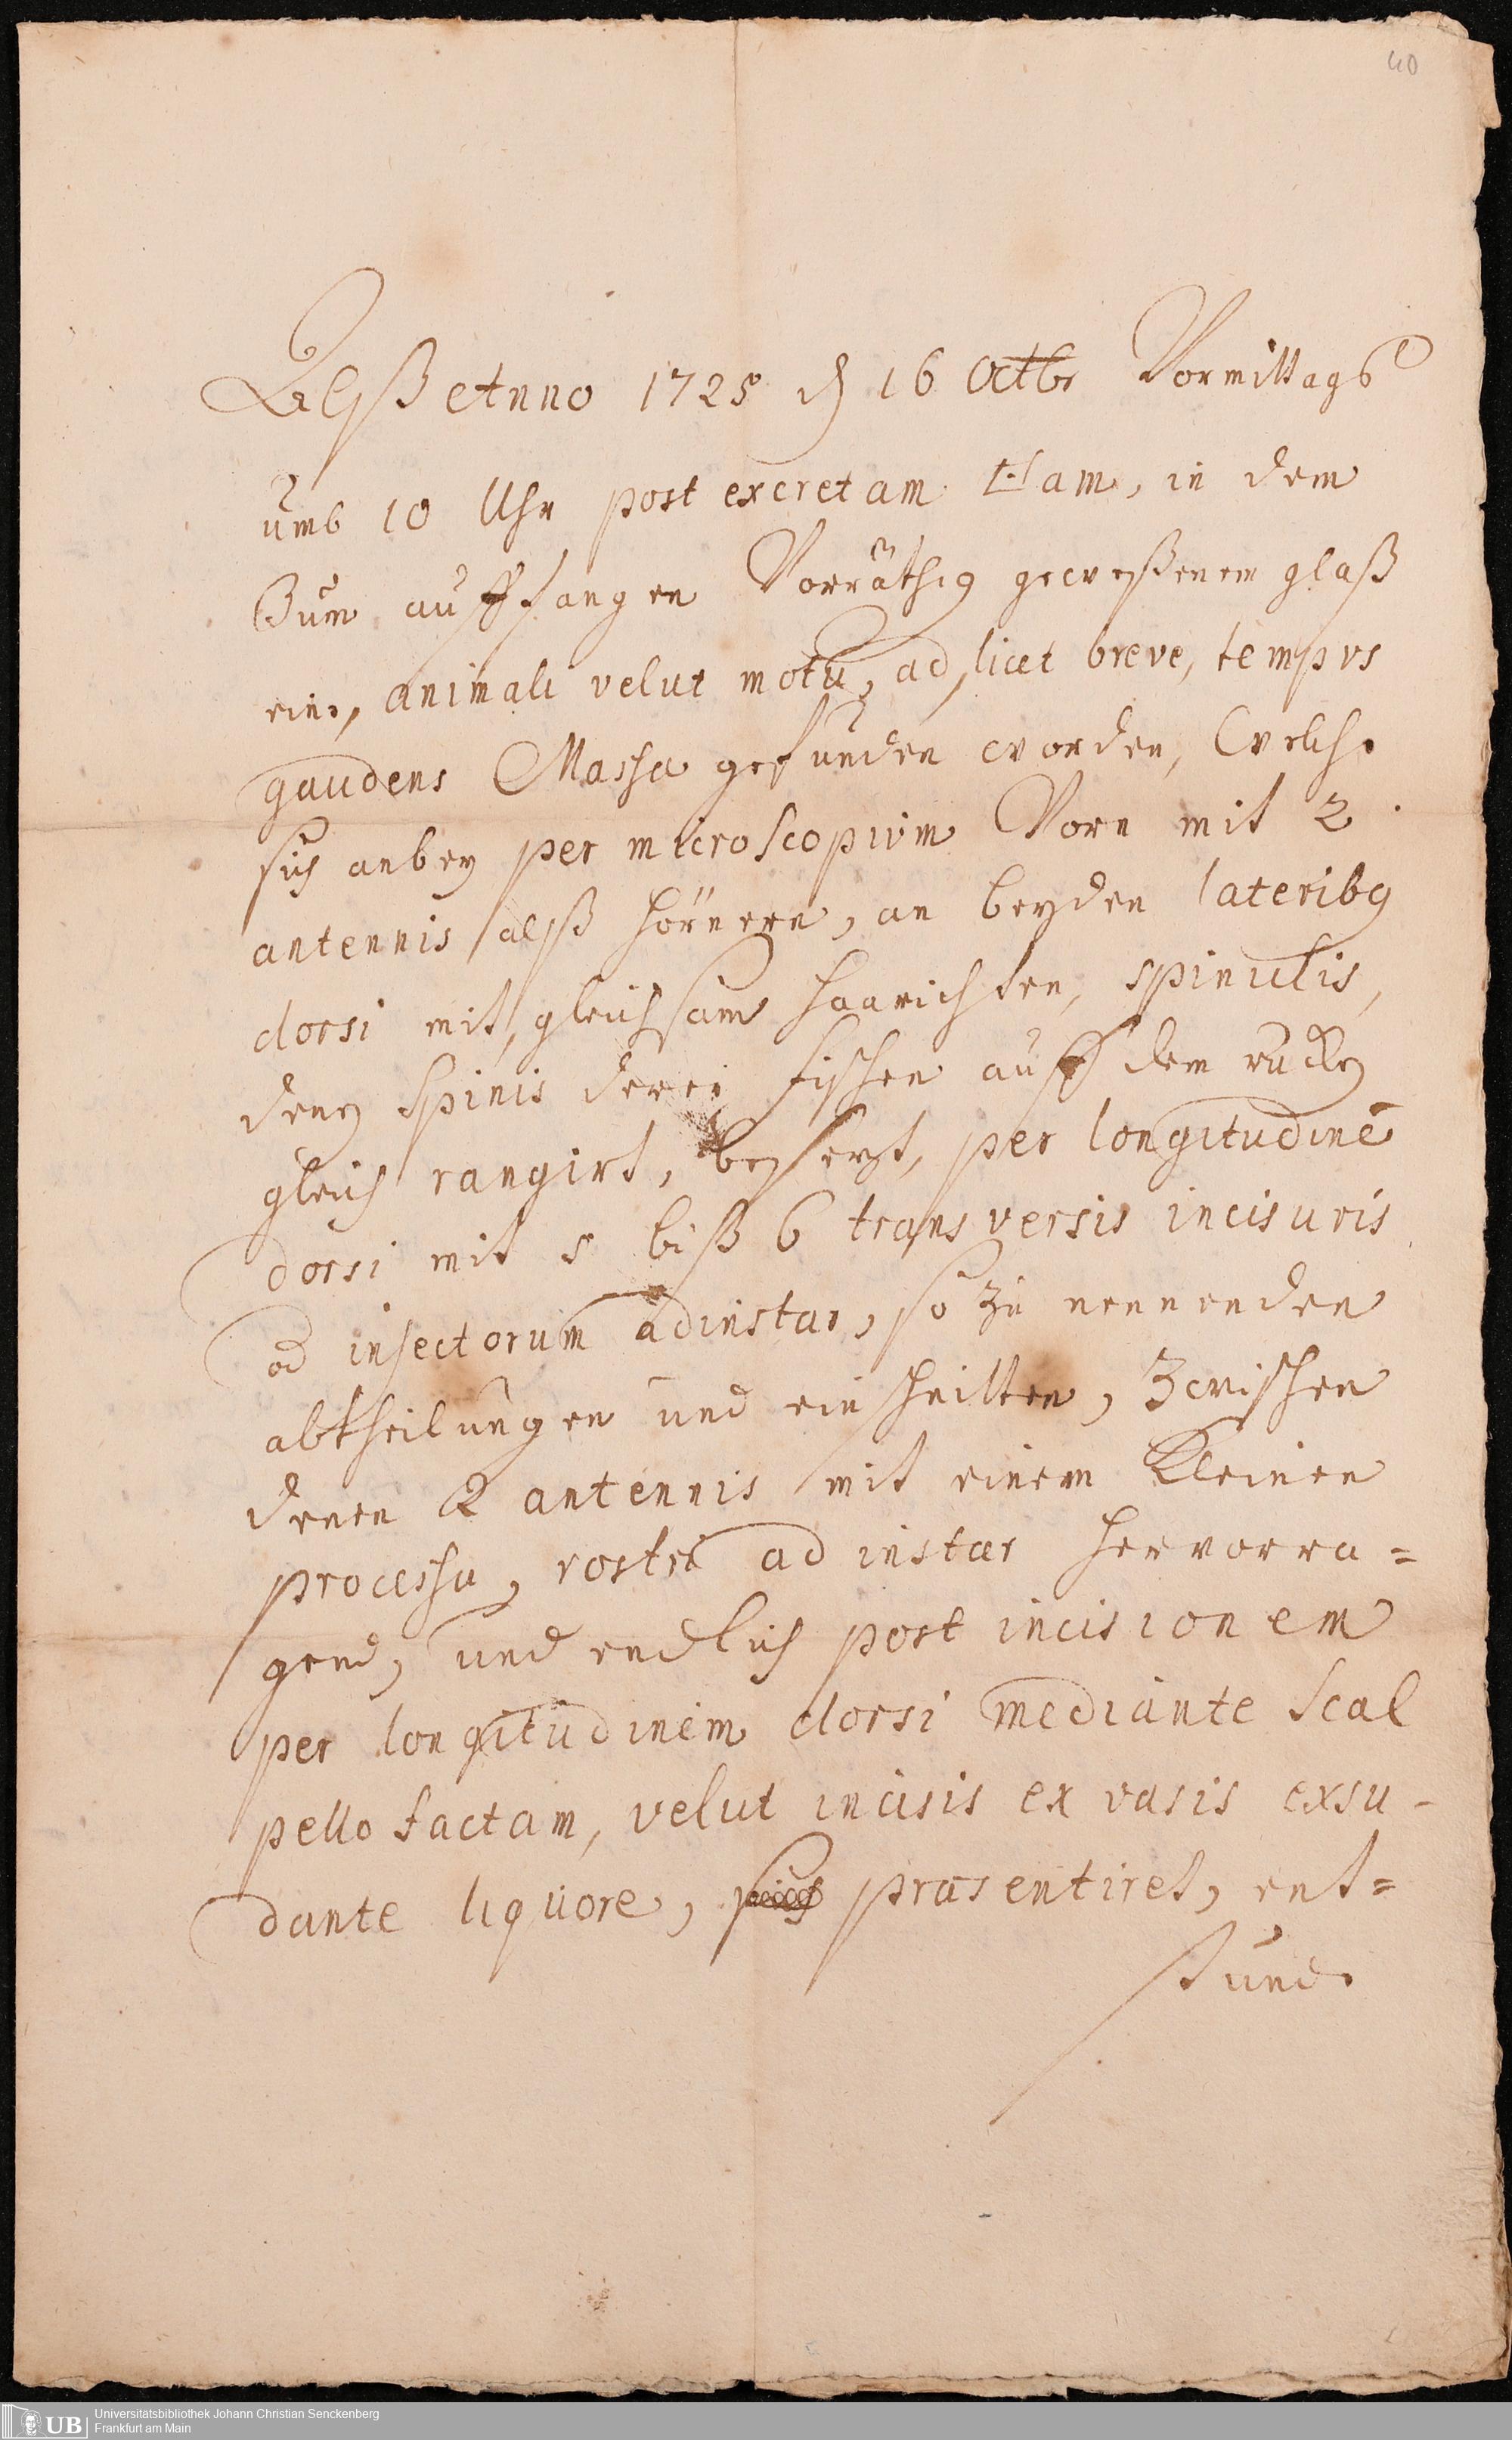 40
Alß Anno 1725 d 16 Octbr Vormittags
umb 10 Uhr post excretam am, in dem
Zum aufffangen Vorräthig geweßenem glaß
eine, animali velut motu, ad, licet breve, tempus
gaudens Massa gefunden worden, Welche
sich anbey per microscopium Vorn mit 2
antennis alß hörnern, an beyden lateribus
dorsi mit, gleichsam haarichten, spinulis,
denen Spinis derer fischen auff dem rucken
gleich rangirt, besezt, per longitudinē
dorsi mit 5 biß 6 transversis incisuris
ad insectorum adinstar, so zu nennenden
abtheilungen und einschnitten, Zwischen
denen 2 antennis mit einem Kleinen
processu, rostri ad instar hervorra=
gend, und endlich post incisionem
per longitudinem dorsi mediante Scal
pello factam, velut incisis ex vasis exsu-
dante liquore, præsentiret, ent=
stunde
UB Universitätsbibliothek Johann Christian Senckenberg
Frankfurt am Main